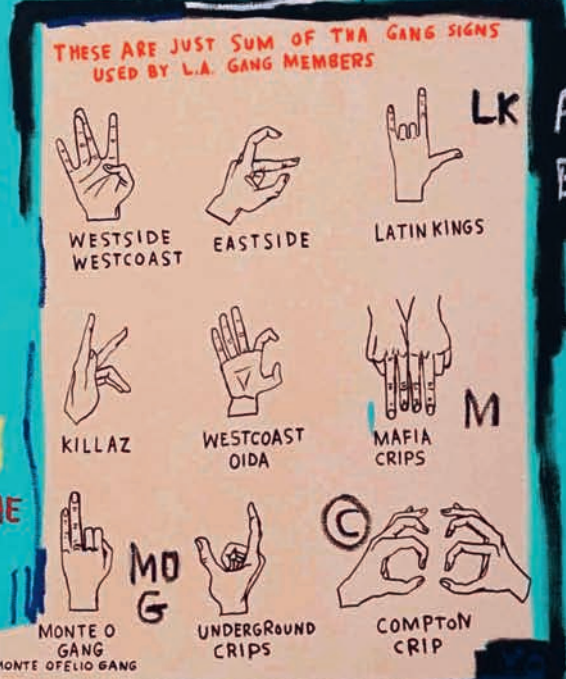 THESE ARE JUST SUM OF THA GANG SIGNS
USED BY L.A. GANG MEMBERS
LK
WESTSIDE
WESTCOAST
EASTSIDE
LATIN KINGS
KILLAZ
WESTCOAST
OIDA
MAFIA
CRIPS
M
MONTE O
GANG
MONTE OFELIO GANG
MO
G
UNDERGROUND
CRIPS
C
COMPTON
CRIP